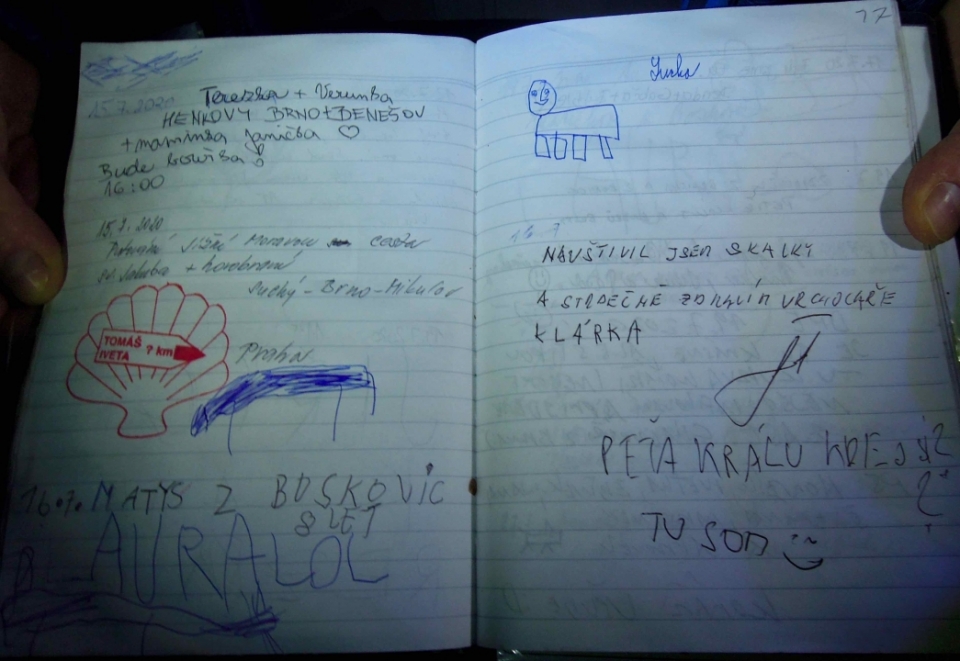 15.7.2020 Terezka + Verunka
HENKOVY BRNO+BENEŠOV
+ maminka Janička ♡
Bude bouřka!
16:00
15.7.2020
Moravou cesta
Suchý - Brno - Mikulov
TOMÁŠ
IVETA ? km
Praha
16.7. MATYS Z BOSKOVIC
8 LET
AURALOL
17
NAVŠTIVIL JSEM SKALKY
A SRDEČNĚ ZDRAVÍM VRCHOLAŘE
KLÁRKA
PEŤA KRÁLU KDE JSI?
?
TU SOM